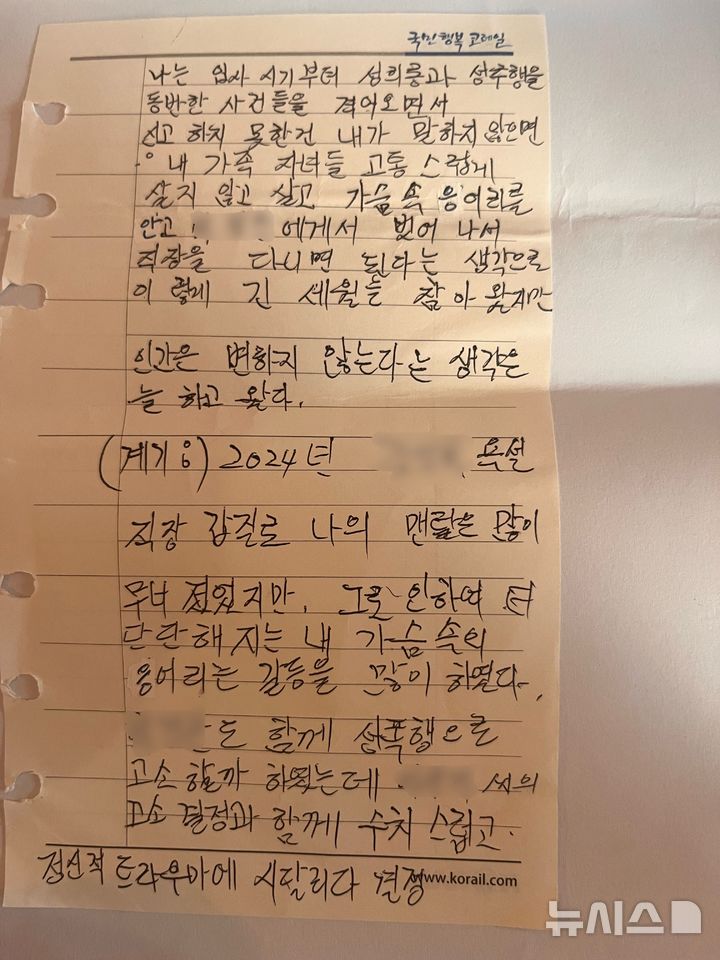 국민행복 코레일
나는 입사 시기부터 성희롱과 성추행을
동반한 사건들을 겪어오면서
신고 하지 못한건 내가 말하지 않으면
내 가족 자녀들 고통 스럽게
살지 않고 살고 가슴속 응어리를
안고 에게서 벗어 나서
직장을 다니면 된다는 생각으로
이렇게 긴 세월을 참아 왔지만
인간은 변하지 않는다는 생각은
늘 하고 왔다.
(계기 ㅇ) 2024년 욕설
직장 갑질로 나의 맨탈은 많이
무너 졌었지만, 그로 인하여 더
단단해 지는 내 가슴속의
응어리는 갈등을 많이 하였다.
도 함께 성폭행으로
고소 할까 하였는데 씨의
고소 결정과 함께 수치 스럽고.
정신적 트라우마에 시달리다 결정
www.korail.com
뉴시스